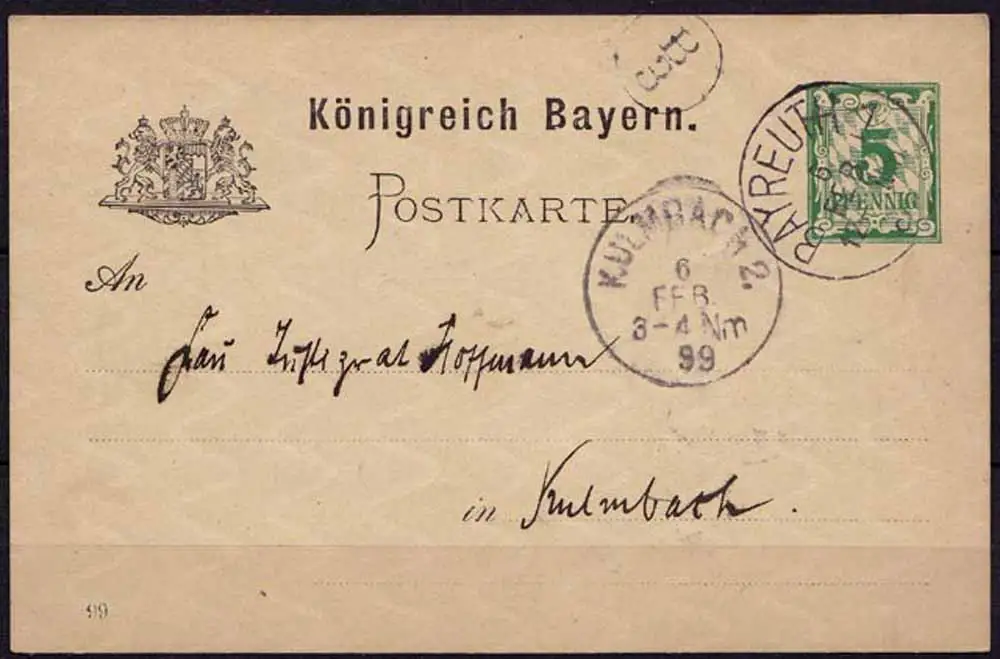 Königreich Bayern.
POSTKARTE.
BAYREUTH
6
FEB
5
PFENNIG
KULMBACH 2.
6
FEB.
3-4 Nm
99
An
Frau Justizrat Hoffmann
in Kulmbach.
99